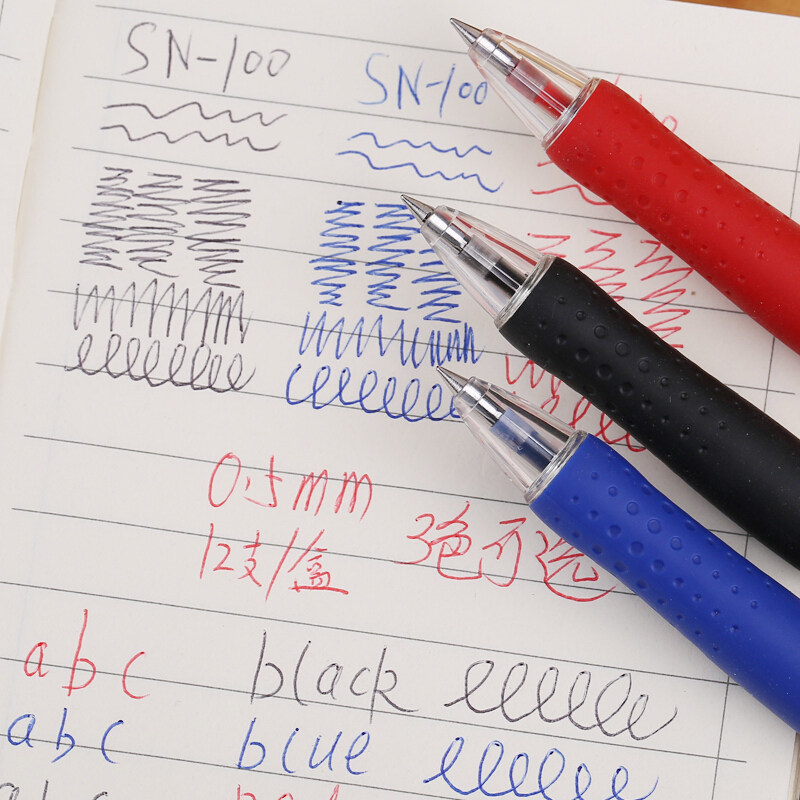 SN-100
SN-100
0.5mm
12支/盒
3色可选
abc
black
abc
blue
abc